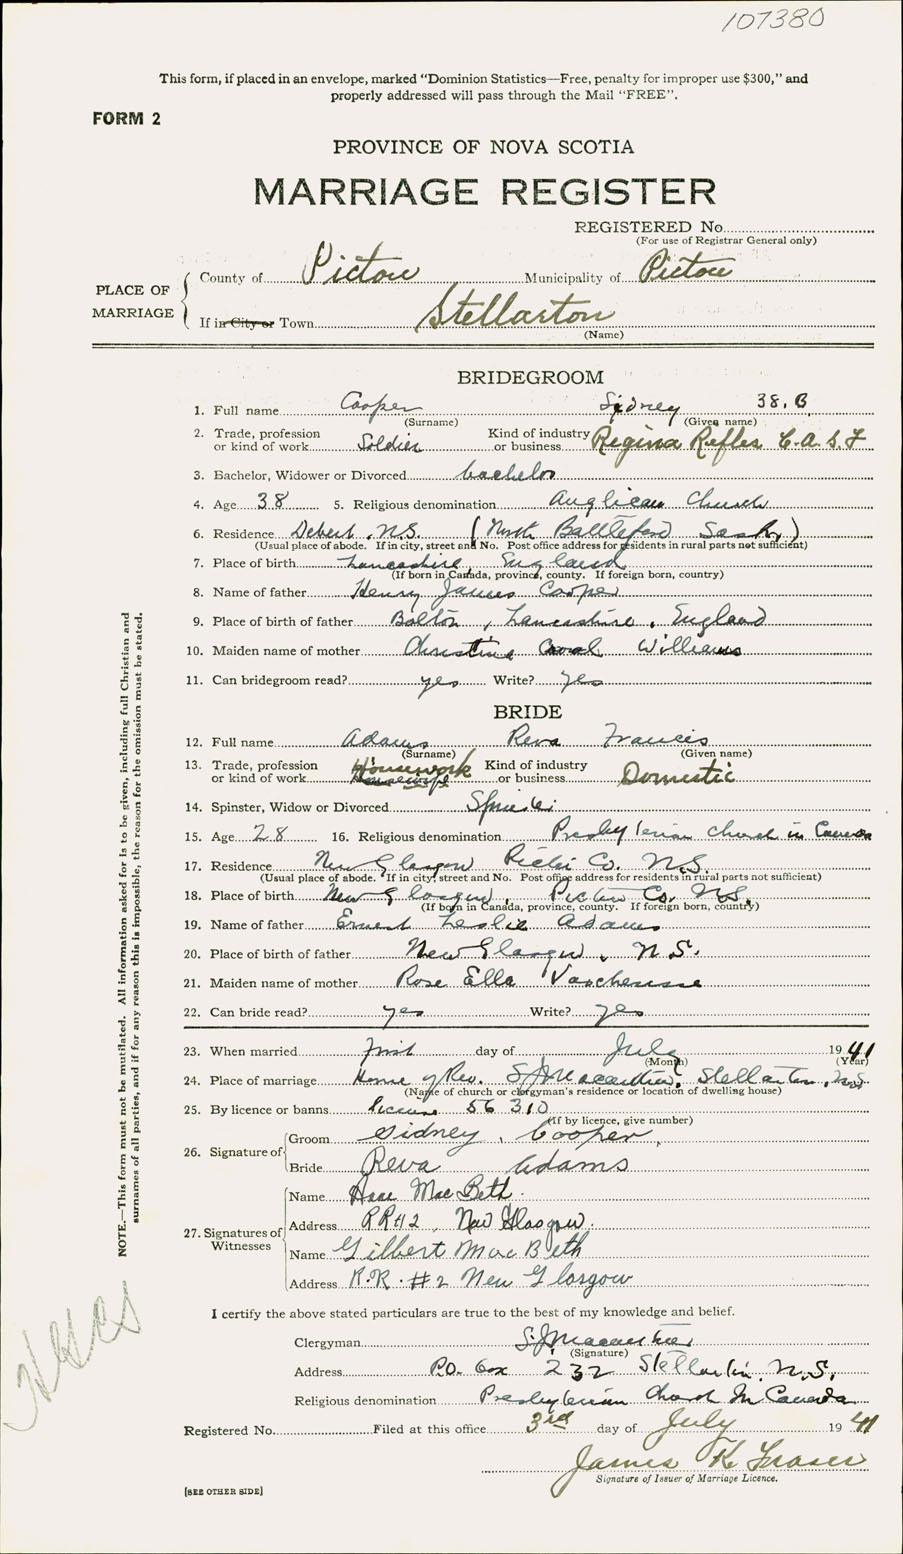 107380
This form, if placed in an envelope, marked “Dominion Statistics—Free, penalty for improper use $300,” and
properly addressed will pass through the Mail “FREE”.
FORM 2
PROVINCE OF NOVA SCOTIA
MARRIAGE REGISTER
REGISTERED No.
(For use of Registrar General only)
PLACE OF MARRIAGE
County of Pictou Municipality of Pictou
If in City or Town Stellarton
(Name)
BRIDEGROOM
1. Full name Cooper Sidney 38. B
(Surname) (Given name)
2. Trade, profession or kind of work Soldier Kind of industry or business Regina Rifles C.A.S.F
3. Bachelor, Widower or Divorced bachelor
4. Age 38 5. Religious denomination Anglican Church
6. Residence Debert, N.S. (North Battleford Sask.)
(Usual place of abode. If in city, street and No. Post office address for residents in rural parts not sufficient)
7. Place of birth Lancashire, England
(If born in Canada, province, county. If foreign born, country)
8. Name of father Henry James Cooper
9. Place of birth of father Bolton, Lancashire, England
10. Maiden name of mother Christina Williams
11. Can bridegroom read? yes Write? yes
BRIDE
12. Full name Adams Reva Francis
(Surname) (Given name)
13. Trade, profession or kind of work Housework Kind of industry or business Domestic
14. Spinster, Widow or Divorced
15. Age 28 16. Religious denomination Presbyterian Church in Canada
17. Residence New Glasgow Co. N.S.
(Usual place of abode. If in city, street and No. Post office address for residents in rural parts not sufficient)
18. Place of birth New Glasgow, Pictou Co. N.S.
(If born in Canada, province, county. If foreign born, country)
19. Name of father Ernest Leslie Adams
20. Place of birth of father New Glasgow, N.S.
21. Maiden name of mother Rose Ella
22. Can bride read? yes Write? yes
23. When married first day of July 1941
(Month) (Year)
24. Place of marriage Home of Rev. Stellarton, N.S.
(Name of church or clergyman's residence or location of dwelling house)
25. By licence or banns license 56310
(If by licence, give number)
26. Signature of
Groom Sidney Cooper,
Bride Reva Adams
27. Signatures of Witnesses
Name MacBeth.
Address RR#2, New Glasgow.
Name Gilbert MacBeth
Address R.R. #2 New Glasgow
I certify the above stated particulars are true to the best of my knowledge and belief.
Clergyman
(Signature)
Address P.O. Box 232 Stellarton, N.S.
Religious denomination Presbyterian Church In Canada
Registered No. Filed at this office 3rd day of July 1941
James K Fraser
Signature of Issuer of Marriage Licence.
[SEE OTHER SIDE]
NOTE.—This form must not be mutilated. All information asked for is to be given, including full Christian and
surnames of all parties, and if for any reason this is impossible, the reason for the omission must be stated.